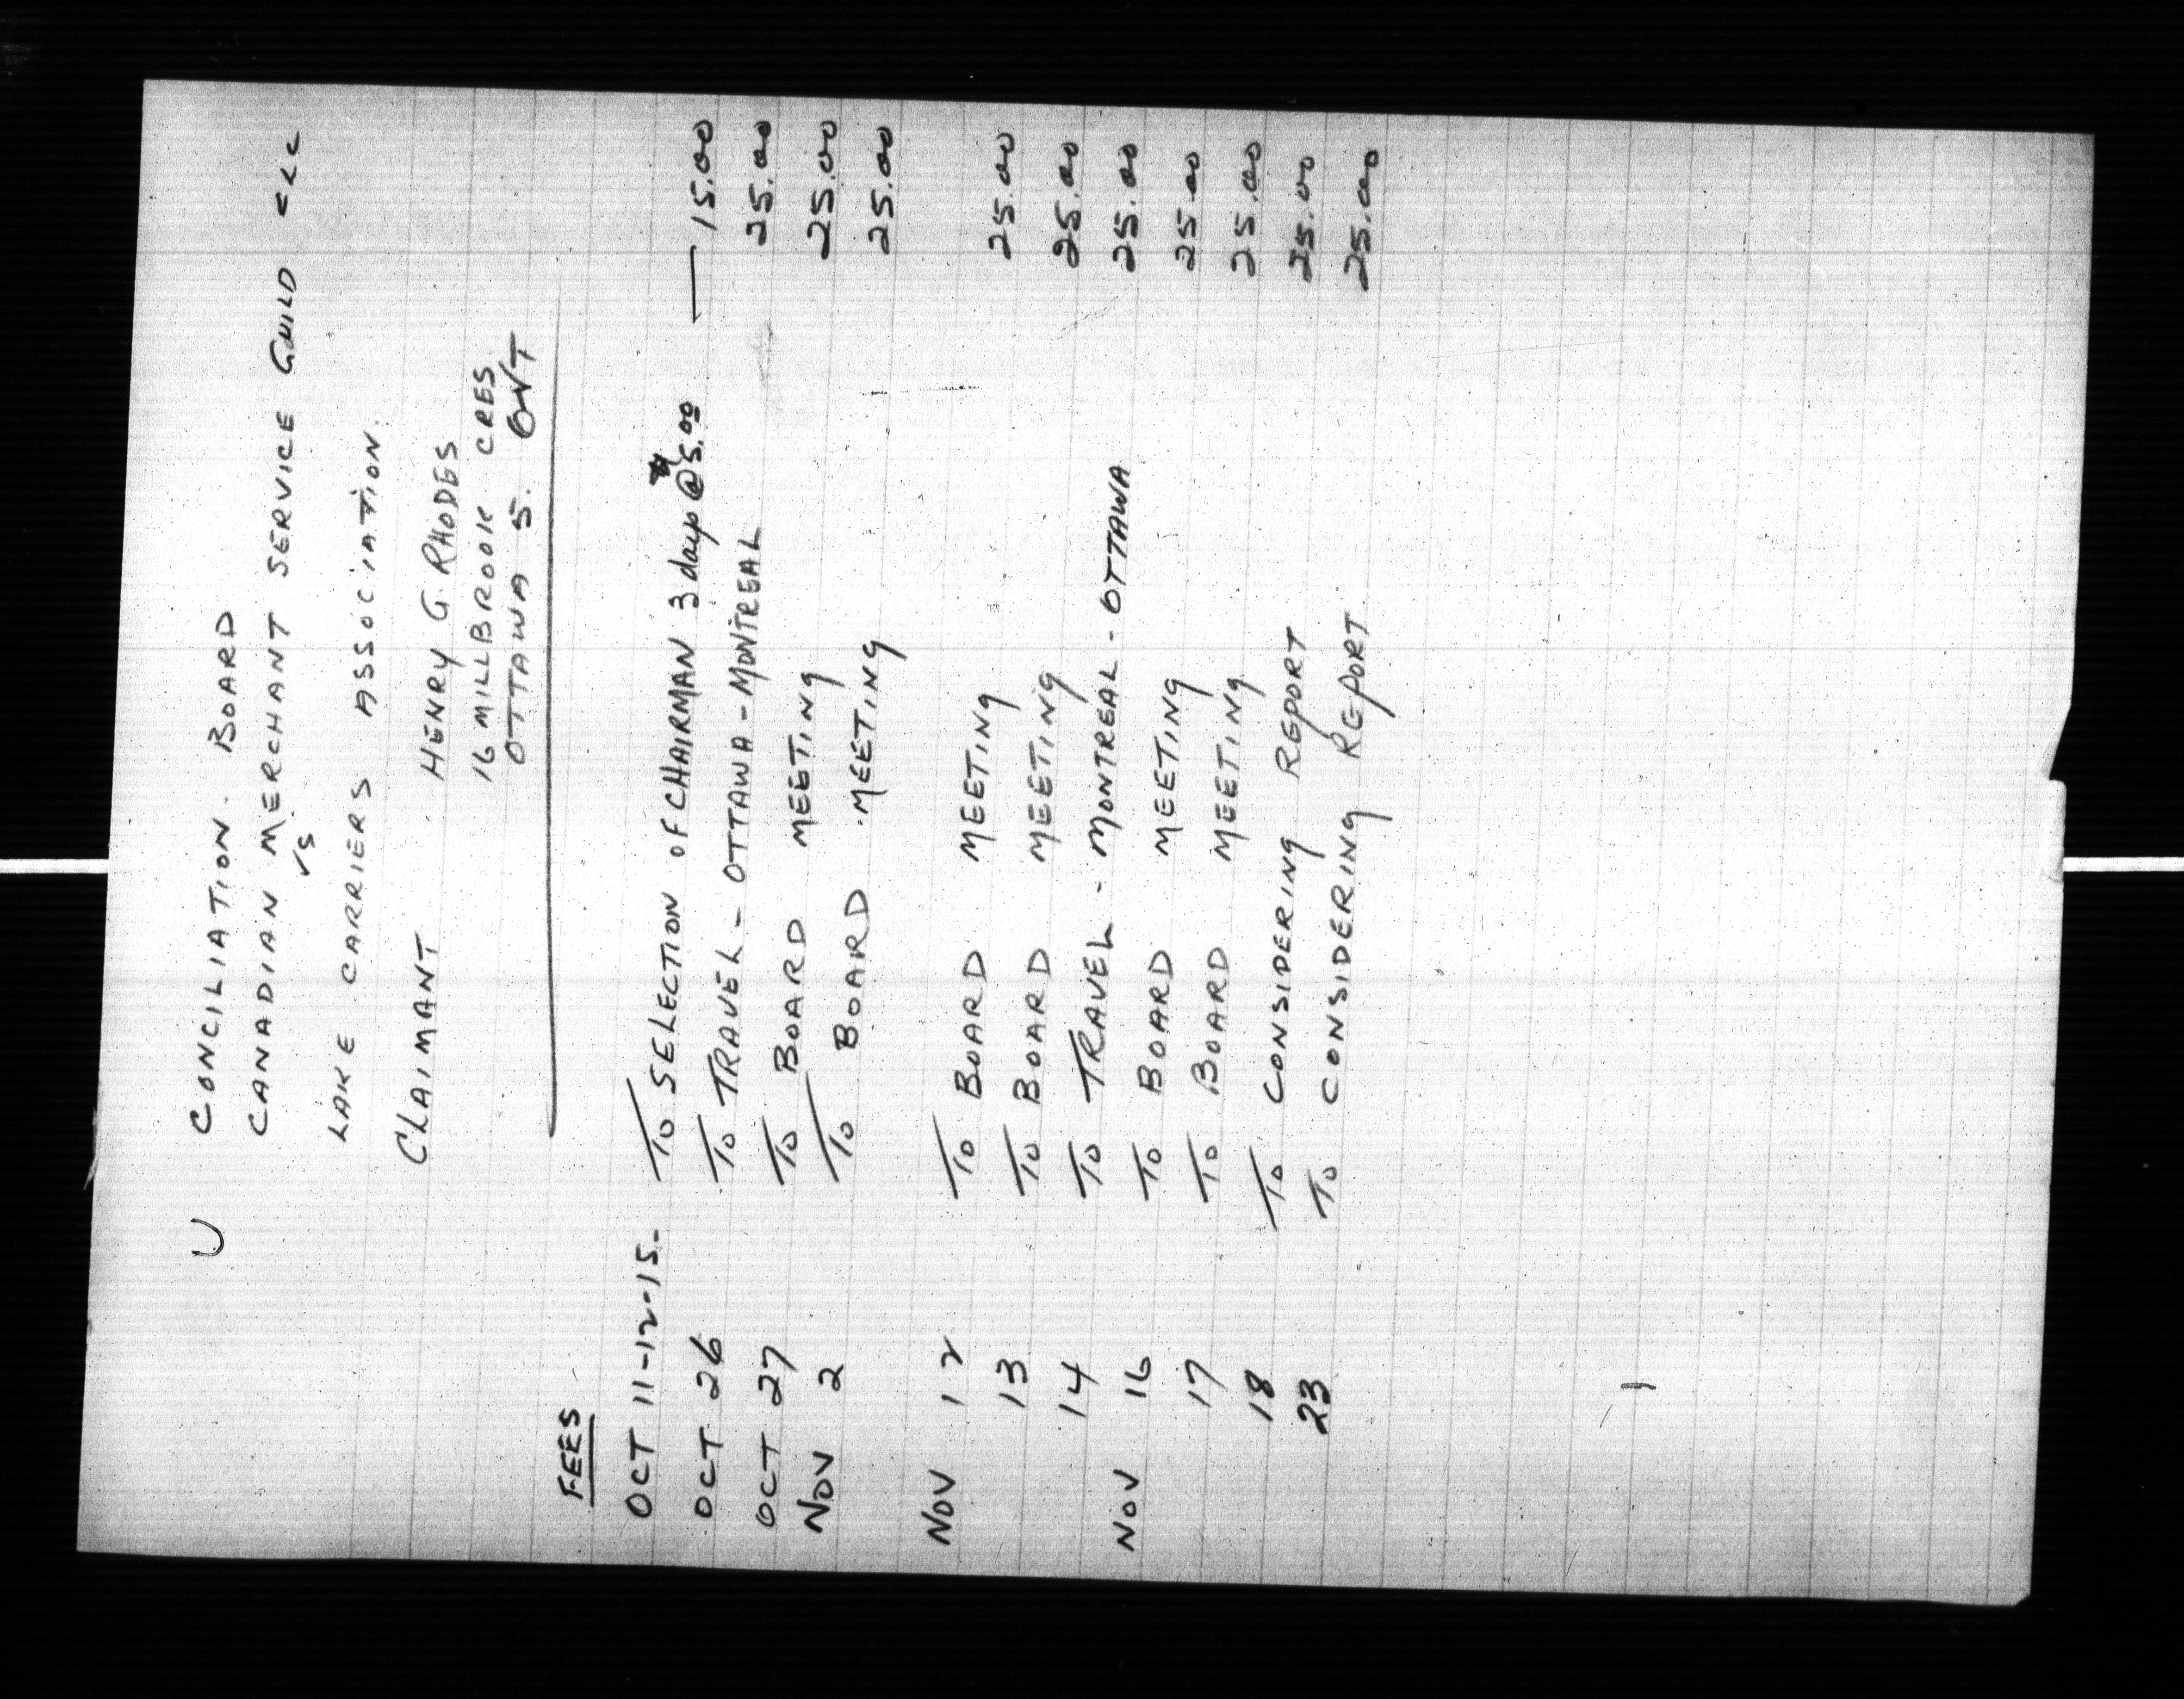 U CONCILIATION. BOARD
CANADIAN MERCHANT SERVICE GUILD
VS
LAKE CARRIERS ASSOCIATION.
CLAIMANT HENRY G. RHODES
16 MILLBROOK CRES
OTTAWA 5. ONT
FEES
OCT 11-12-15- To SELECTION OF CHAIRMAN 3 days @ 5.00 — 15.00
OCT 26 To TRAVEL - OTTAWA - MONTREAL 25.00
OCT 27 To BOARD MEETING 25.00
NOV 2 To BOARD MEETING 25.00
NOV 12 To BOARD MEETING 25.00
13 To BOARD MEETING 25.00
14 To TRAVEL - MONTREAL - OTTAWA 25.00
NOV 16 To BOARD MEETING 25.00
17 To BOARD MEETING 25.00
18 To CONSIDERING REPORT 25.00
23 To CONSIDERING REPORT 25.00